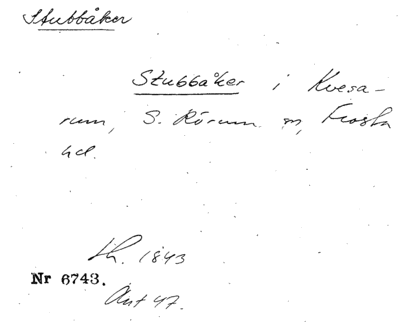 Stubbåker
Stubbåker i Kvesa-
rum, S. Rörum sn, Frosta
hd.
Lh. 1843
Nr 6743.
Ant 47.